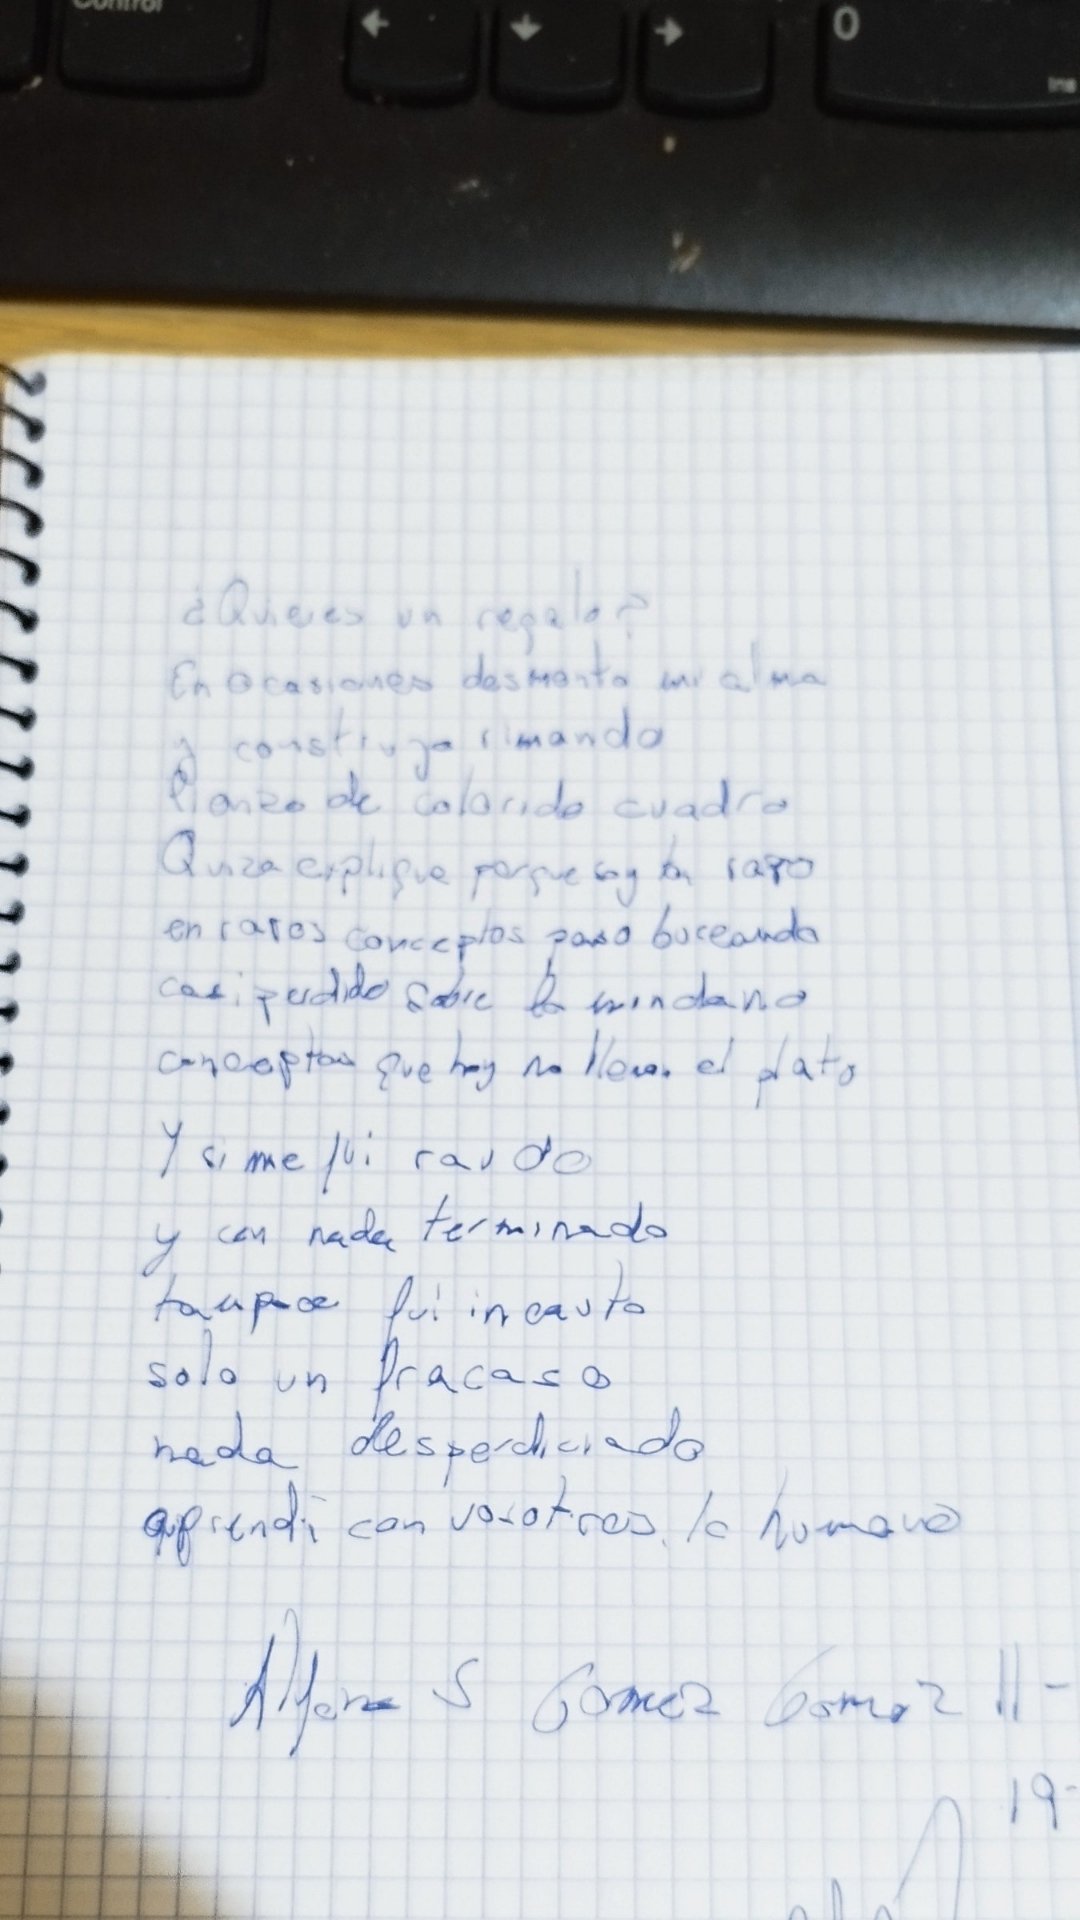 Control
← ↓ →
0
Ins
¿Quieres un regalo?
En ocasiones desmonto mi alma
y construyo rimando
lienzo de colorido cuadro
Quiza explique porque soy tan raro
en raros conceptos paso buceando
casi perdido sobre lo mundano
conceptos que hoy no llenan el plato
Y si me fui raudo
y con nada terminado
tampoco fui incauto
solo un fracaso
nada desperdiciado
aprendi con vosotros lo humano
Alfonso S Gomez Gomez 11-
19-